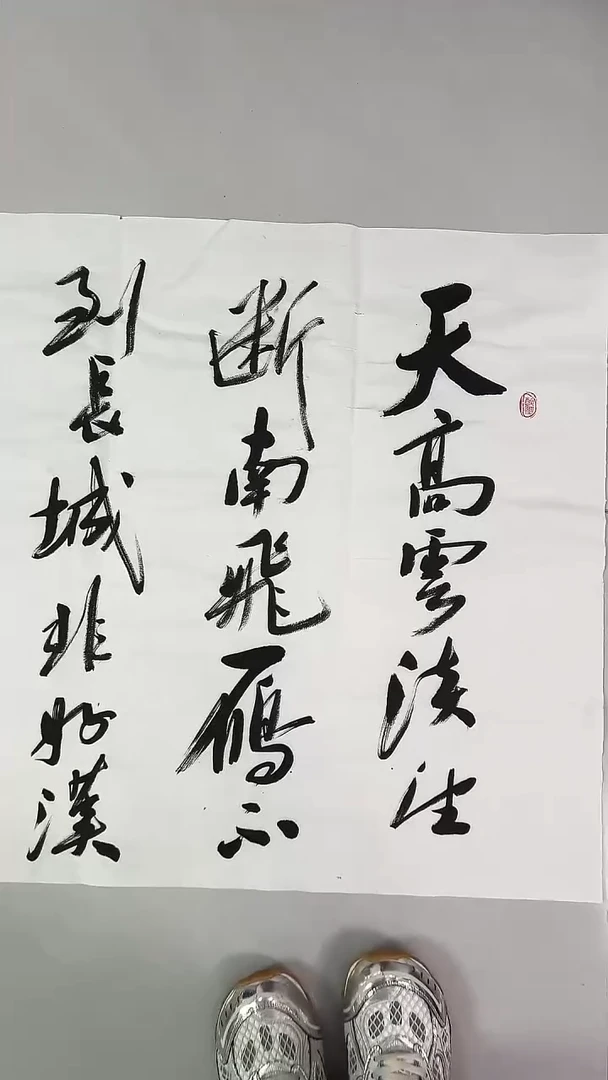 天高雲淡望
断南飛雁不
到長城非好漢